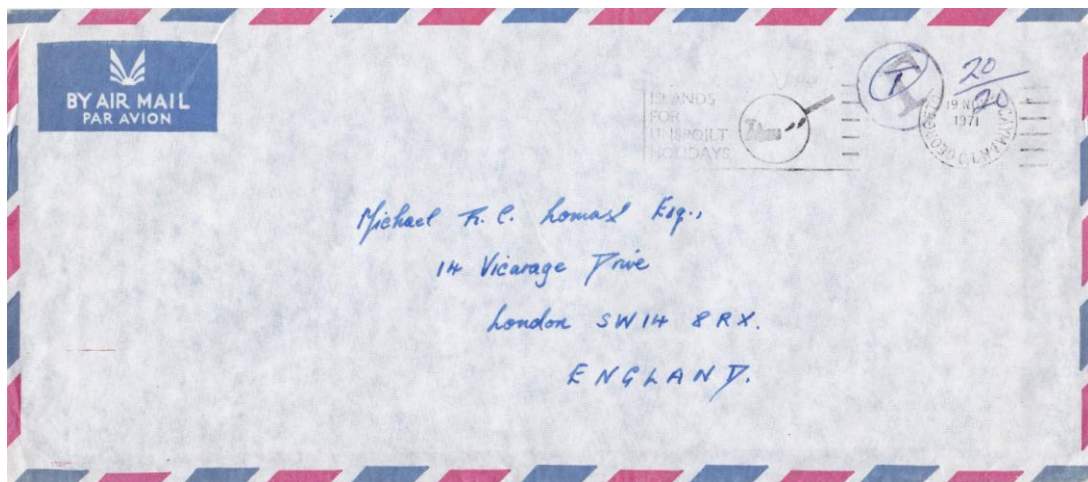 BY AIR MAIL
PAR AVION
ISLANDS
FOR
UNSPOILT
HOLIDAYS
T
20/20
19 NO
1971
GEORGETOWN
CAYMAN
Michael R. C. Lomas Esq.,
14 Vicarage Drive
London SW14 8RX.
ENGLAND.